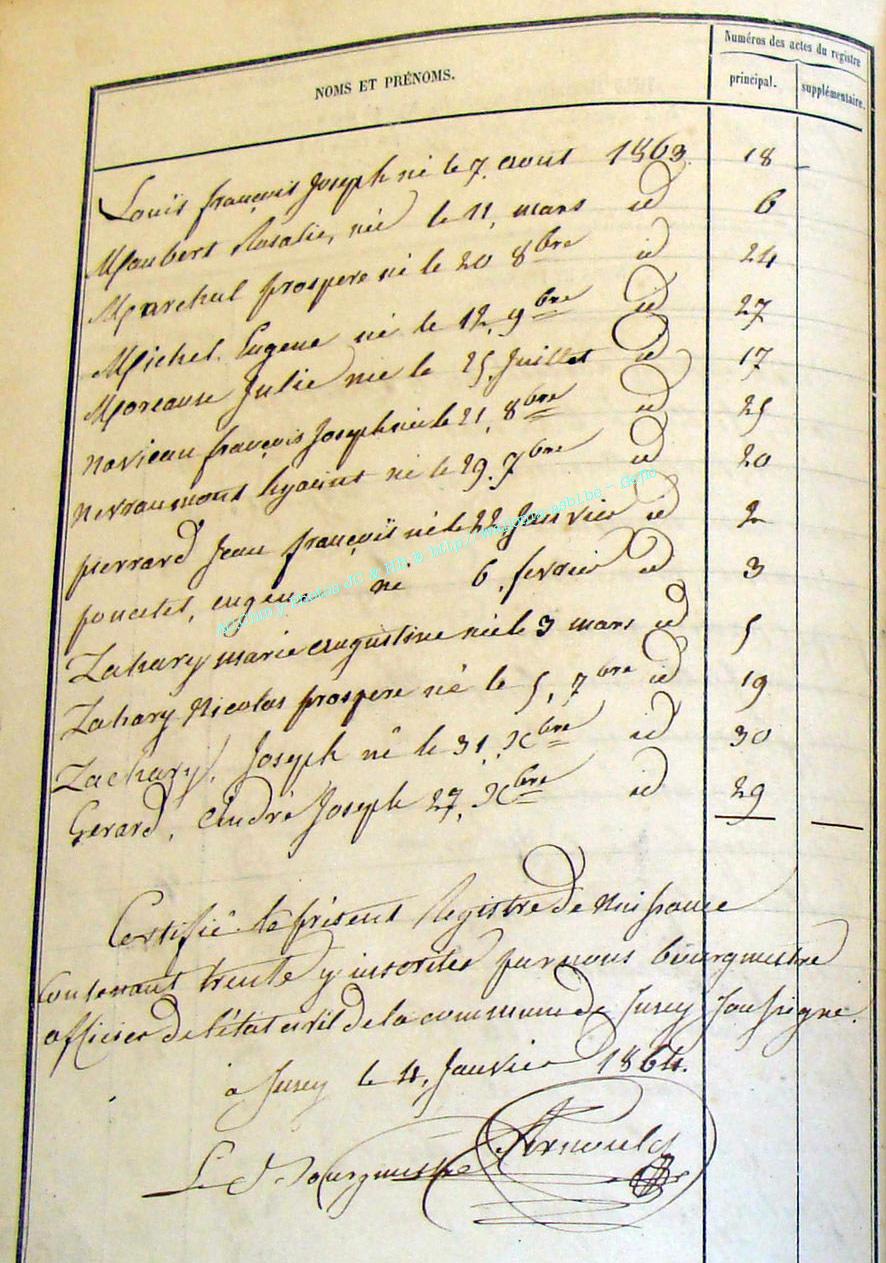 NOMS ET PRÉNOMS.
Numéros des actes du registre
principal. supplémentaire.
Louïs françois Joseph né le 7. aout 1863. 18
Maubert Rosalie, née le 11, mars id 6
Marchal prospere né le 20 8bre id 24
Michel Eugene né le 12, 9bre id 27
Moreause Julie née le 25, Juillet id 17
navieau françois Joseph né le 21, 8bre id 25
nevraumont hyacint né le 29. 7bre id 20
pierrard Jean françoïs né le 22 Janvier id 2
poncelet, eugene né 6, fevrier id 3
Zahary marie augustine née le 3 mars id 5
Zahary Nicolas prospere né le 5, 7bre id 19
Zachary, Joseph né le 31, Xbre id 30
Gerard, André Joseph 27, Xbre id 29
Certifié le présent Registre de Naissance
Contenant trente y inscrites par nous bourgmestre
officier de l'état civil de la commune de Jusey Soussigné.
à Jusey le 4, Janvier 1864.
Le Bourgmestre